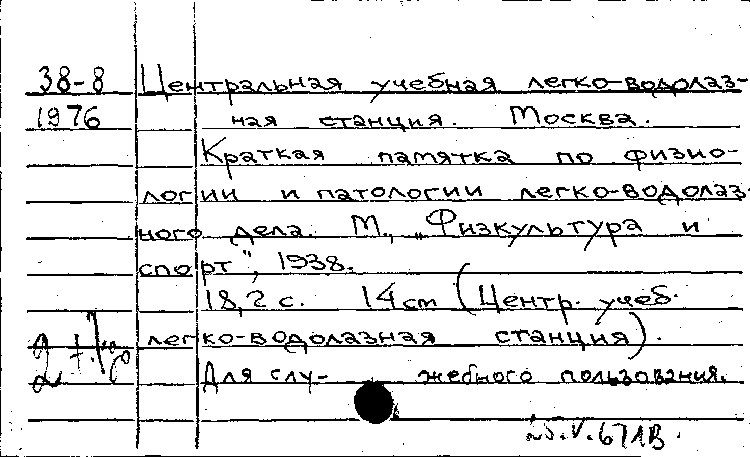 38-8 Центральная учебная легко-водолаз-
1976 ная станция. Москва.
Краткая памятка по физио-
логии и патологии легко-водолаз-
ного дела. М., „Физкультура и
спорт", 1938.
18,2 с. 14 cm (Центр. учеб.
легко-водолазная станция).
Для слу- жебного пользования.